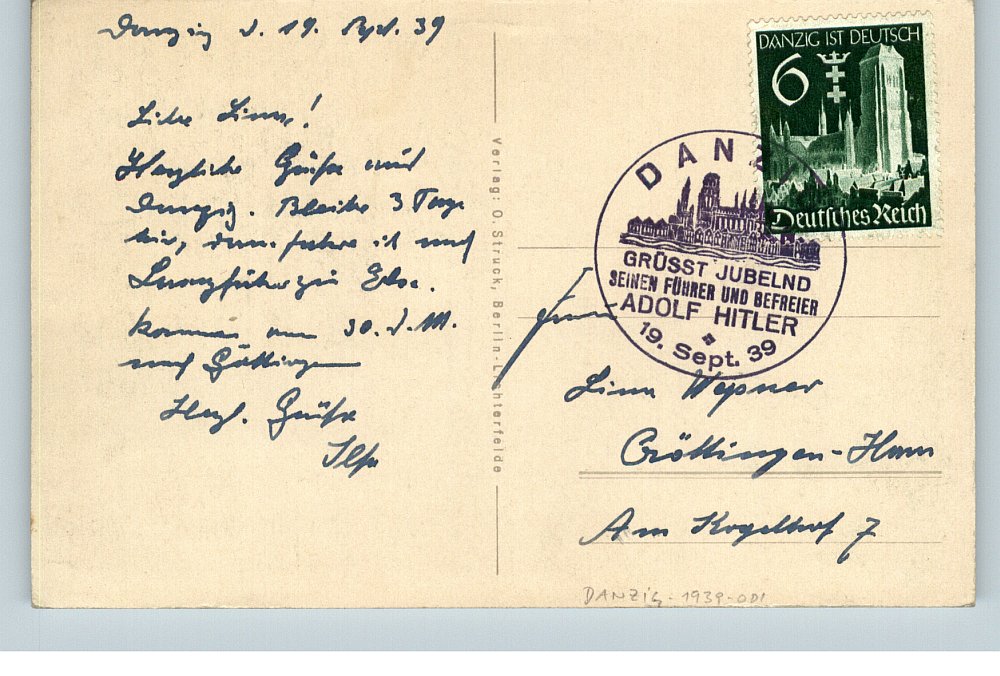 Danzig d. 19. Sept. 39
Liebe Linne!
Herzliche Grüße aus
Danzig. Bleibe 3 Tage
hier, dann fahre ich nach
Langfuhr zu
Komme am 30. d. M.
nach Göttingen
Herzl. Grüße
Ilse
Verlag: O. Struck, Berlin-Lichterfelde
DANZIG IST DEUTSCH
6
Deutsches Reich
DANZI
GRÜSST JUBELND
SEINEN FÜHRER UND BEFREIER
ADOLF HITLER
19. Sept. 39
Göttingen-Hann
Am 7
DANZig-1939-001